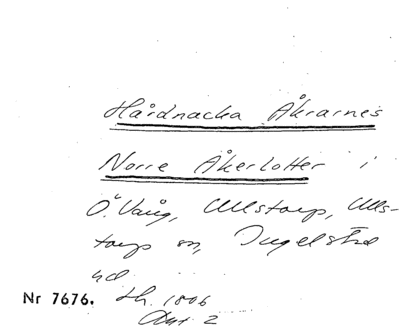 Hårdnacka Åkrarnes
Norre Åkerlotter i
Ö. Vång, Ullstorp, Ulls-
torp sn, Ingelstad
hd
Nr 7676. Lh. 1806
Akt 2